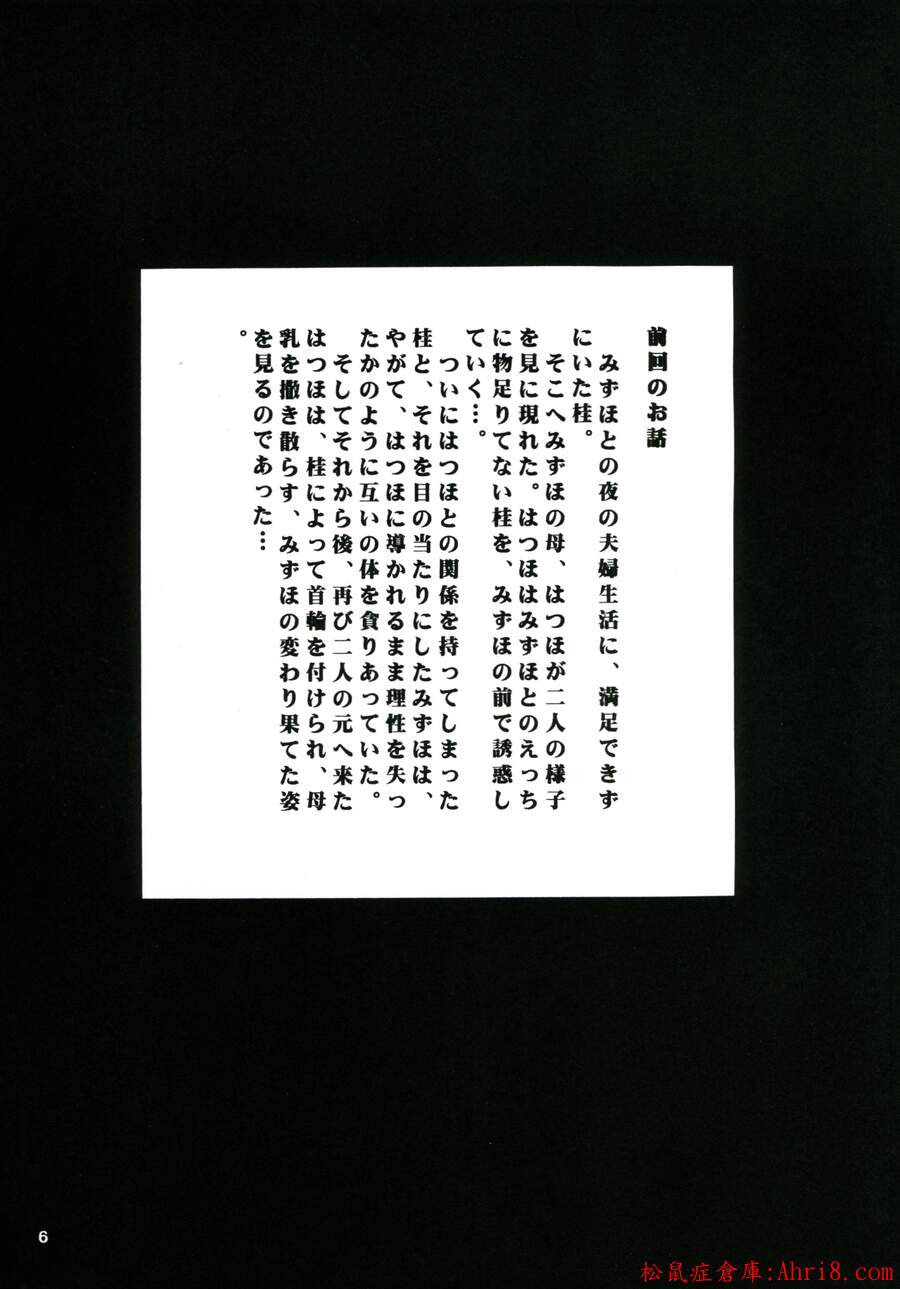 前回のお話
　みずほとの夜の夫婦生活に、満足できず
にいた桂。
　そこへみずほの母、はつほが二人の様子
を見に現れた。はつほはみずほとのえっち
に物足りてない桂を、みずほの前で誘惑し
ていく…。
　ついにはつほとの関係を持ってしまった
桂と、それを目の当たりにしたみずほは、
やがて、はつほに導かれるまま理性を失っ
たかのように互いの体を貪りあっていた。
　そしてそれから後、再び二人の元へ来た
はつほは、桂によって首輪を付けられ、母
乳を撒き散らす、みずほの変わり果てた姿
を見るのであった…
。
6
松鼠症倉庫:Ahri8.com